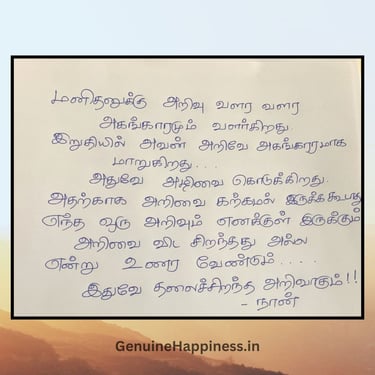 மனிதனுக்கு அறிவு வளர வளர
அகங்காரமும் வளர்கிறது
இறுதியில் அவன் அறிவே அகங்காரமாக
மாறுகிறது...
அதுவே அழிவை கொடுக்கிறது.
அதற்காக அறிவை கற்காமல் இருக்க கூடாது
எந்த ஒரு அறிவும் எனக்குள் இருக்கும்
அறிவை விட சிறந்தது அல்ல
என்று உணர வேண்டும்....
இதுவே தலைச்சிறந்த அறிவாகும்!!
- நான்
GenuineHappiness.in